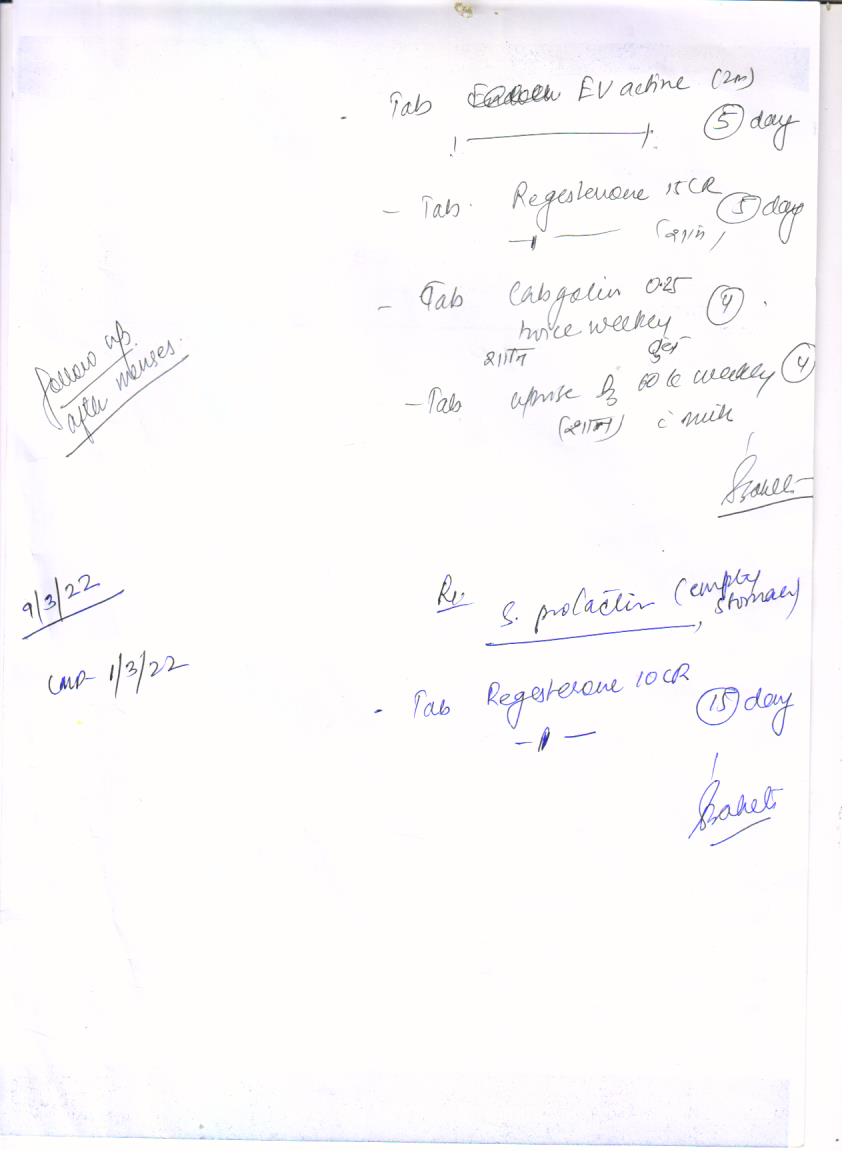 - Tab EV actine (2m)
1 ——— 1 (5) day
- Tab. Regesterone 15 CR (5) day
— 1 —
- Tab Cabgolin 0.25 (4)
twice weekly
- Tab uprise D3 60 k weekly (4)
c milk
follow up.
after menses.
9/3/22
Rx
S. prolactin (empty
stomach)
LMP- 1/3/22
- Tab Regesterone 10 CR (15) day
— 1 —